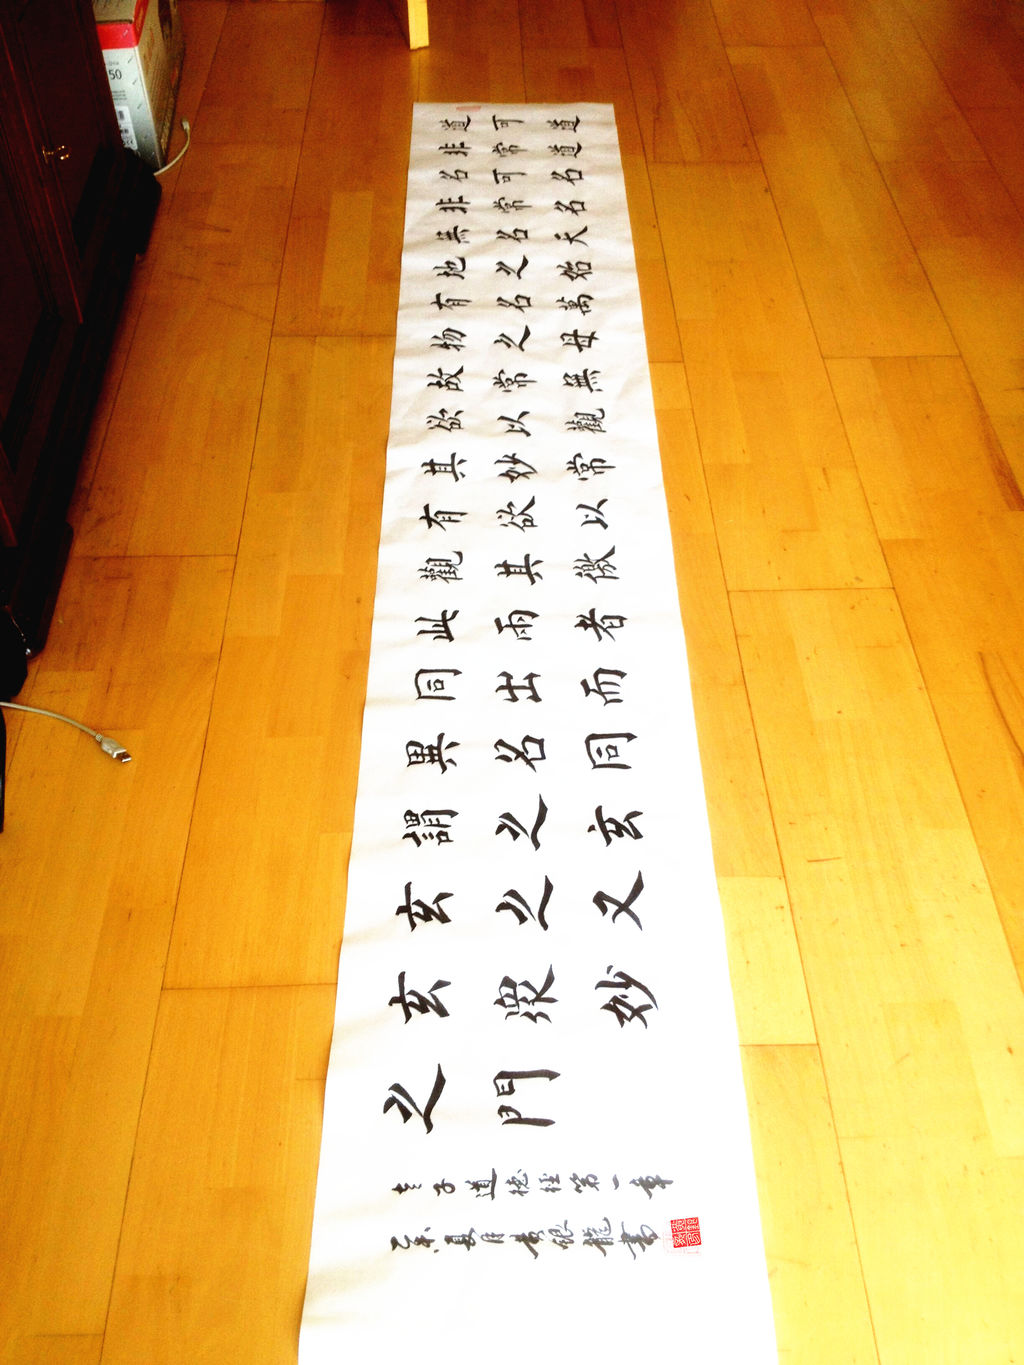 道可道
非常道
名可名
非常名
無名天
地之始
有名萬
物之母
故常無
欲以觀
其妙常
有欲以
觀其徼
此雨者
同出而
異名同
謂之玄
玄之又
玄衆妙
之門
老子道德經第一章
乙未夏月黄銀龍書
50